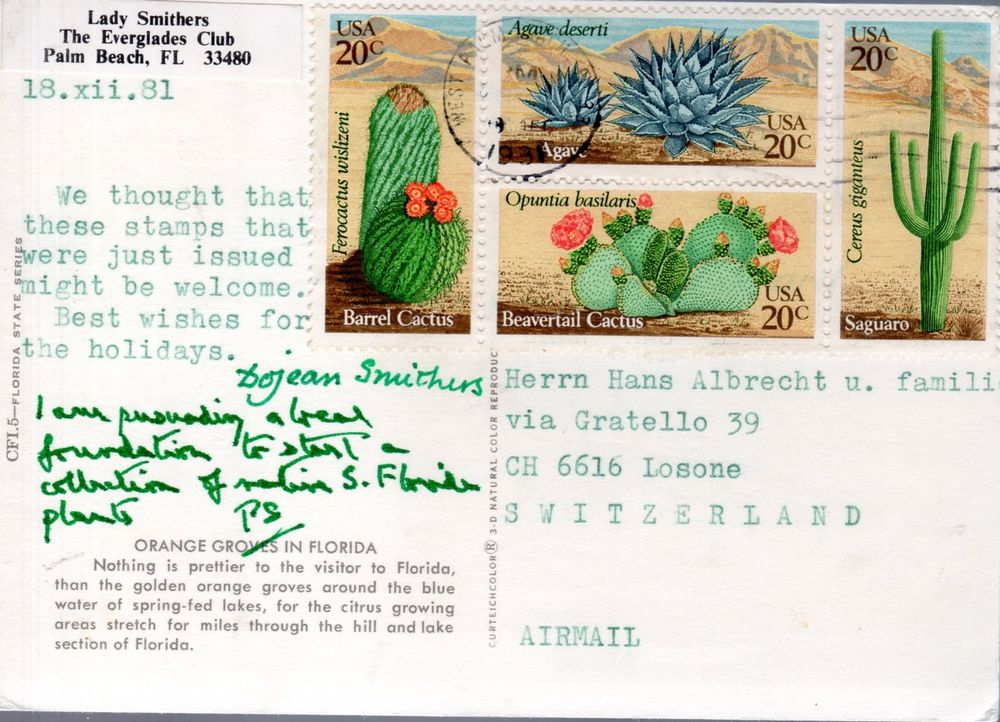 Lady Smithers
The Everglades Club
Palm Beach, FL 33480
18.xii.81
We thought that
these stamps that
were just issued
might be welcome.
Best wishes for
the holidays.
Dojean Smithers
I am persuading a local
foundation to start a
collection of native S. Florida
plants PS
ORANGE GROVES IN FLORIDA
Nothing is prettier to the visitor to Florida,
than the golden orange groves around the blue
water of spring-fed lakes, for the citrus growing
areas stretch for miles through the hill and lake
section of Florida.
CFI.5—FLORIDA STATE SERIES
USA
20c
Ferocactus wislizeni
Barrel Cactus
Agave deserti
USA
20c
Agave
Opuntia basilaris
USA
20c
Beavertail Cactus
USA
20c
Cereus giganteus
Saguaro
WEST PALM
1981
CURTEICHCOLOR® 3-D NATURAL COLOR REPRODUC
Herrn Hans Albrecht u. famili
via Gratello 39
CH 6616 Losone
SWITZERLAND
AIRMAIL